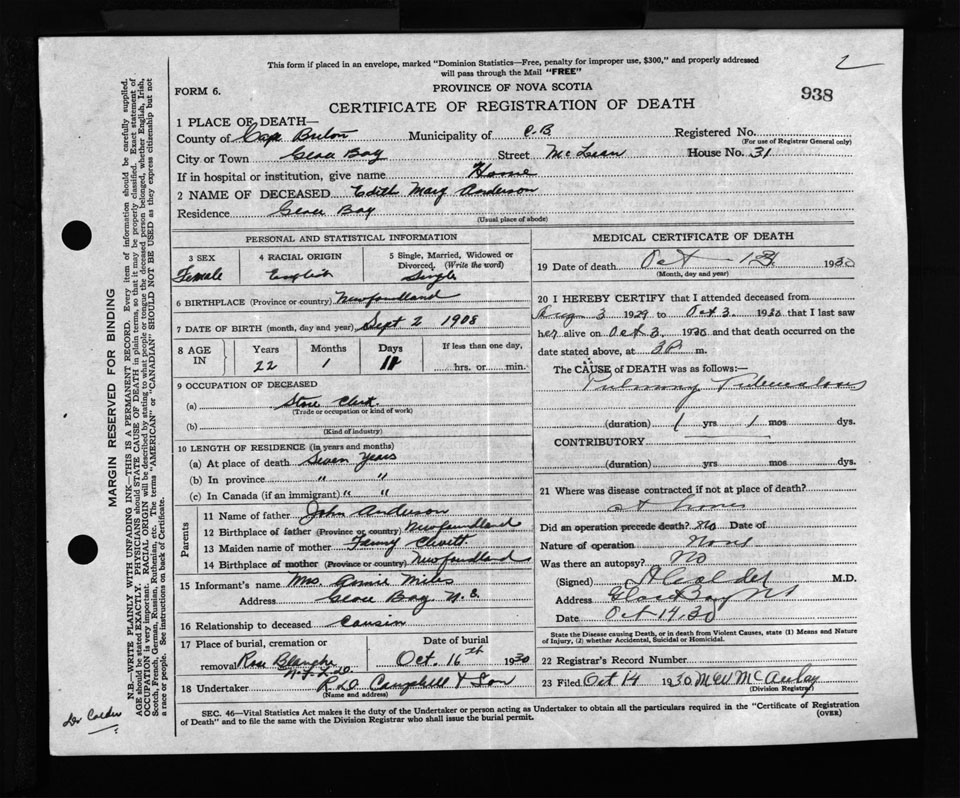 2
This form if placed in an envelope, marked "Dominion Statistics—Free, penalty for improper use, $300," and properly addressed
will pass through the Mail "FREE"
FORM 6.
PROVINCE OF NOVA SCOTIA
938
CERTIFICATE OF REGISTRATION OF DEATH
1 PLACE OF DEATH—
County of Cape Breton Municipality of C.B. Registered No.
(For use of Registrar General only)
City or Town Glace Bay Street McLean House No. 31
If in hospital or institution, give name Home
2 NAME OF DECEASED Edith Mary Anderson
Residence Glace Bay
(Usual place of abode)
PERSONAL AND STATISTICAL INFORMATION
3 SEX 4 RACIAL ORIGIN 5 Single, Married, Widowed or
Divorced. (Write the word)
Female English Single
6 BIRTHPLACE (Province or country) Newfoundland
7 DATE OF BIRTH (month, day and year) Sept 2 1908
8 AGE IN Years Months Days If less than one day,
22 1 11 hrs. or min.
9 OCCUPATION OF DECEASED
(a) Store Clerk
(Trade or occupation or kind of work)
(b)
(Kind of industry)
10 LENGTH OF RESIDENCE (in years and months)
(a) At place of death Seven Years
(b) In province " "
(c) In Canada (if an immigrant) " "
Parents
11 Name of father John Anderson
12 Birthplace of father (Province or country) Newfoundland
13 Maiden name of mother Fanny
14 Birthplace of mother (Province or country) Newfoundland
15 Informant's name Mrs. Miles
Address Glace Bay N.S.
16 Relationship to deceased Cousin
17 Place of burial, cremation or Date of burial
removal Rose Blanche Oct. 16th 1930
Nfld
18 Undertaker R.D. Campbell & Son
(Name and address)
MEDICAL CERTIFICATE OF DEATH
19 Date of death Oct - 13, 1930
(Month, day and year)
20 I HEREBY CERTIFY that I attended deceased from
Aug 3 1929 to Oct 3. 1930 that I last saw
her alive on Oct 3. 1930 and that death occurred on
the date stated above, at 3P m.
The CAUSE of DEATH was as follows:—
Pulmonary Tuberculosis
(duration) 1 yrs 1 mos dys.
CONTRIBUTORY
(duration) yrs mos dys.
21 Where was disease contracted if not at place of death?
At home
Did an operation precede death? No Date of
Nature of operation None
Was there an autopsy? No
(Signed) A Calder M.D.
Address Glace Bay NS
Date Oct 14. 30
State the Disease causing Death, or in death from Violent Causes, state (1) Means and Nature
of Injury, (2) whether Accidental, Suicidal or Homicidal.
22 Registrar's Record Number
23 Filed Oct 14 1930 McAulay
(Division Registrar)
SEC. 46—Vital Statistics Act makes it the duty of the Undertaker or person acting as Undertaker to obtain all the particulars required in the "Certificate of Registration
of Death" and to file the same with the Division Registrar who shall issue the burial permit. (OVER)
MARGIN RESERVED FOR BINDING
N.B.—WRITE PLAINLY WITH UNFADING INK—THIS IS A PERMANENT RECORD. Every item of information should be carefully supplied.
AGE should be stated EXACTLY. PHYSICIANS should STATE CAUSE OF DEATH in plain terms, so that it may be properly classified. Exact statement of
OCCUPATION is very important. RACIAL ORIGIN will be described by stating to what people or tongue the deceased person belonged, whether English, Irish,
Scotch, French, German, Russian, Ruthenian, etc. The terms "AMERICAN" or "CANADIAN" SHOULD NOT BE USED as they express citizenship but not
a race or people. See instructions on back of Certificate.
Dr Calder